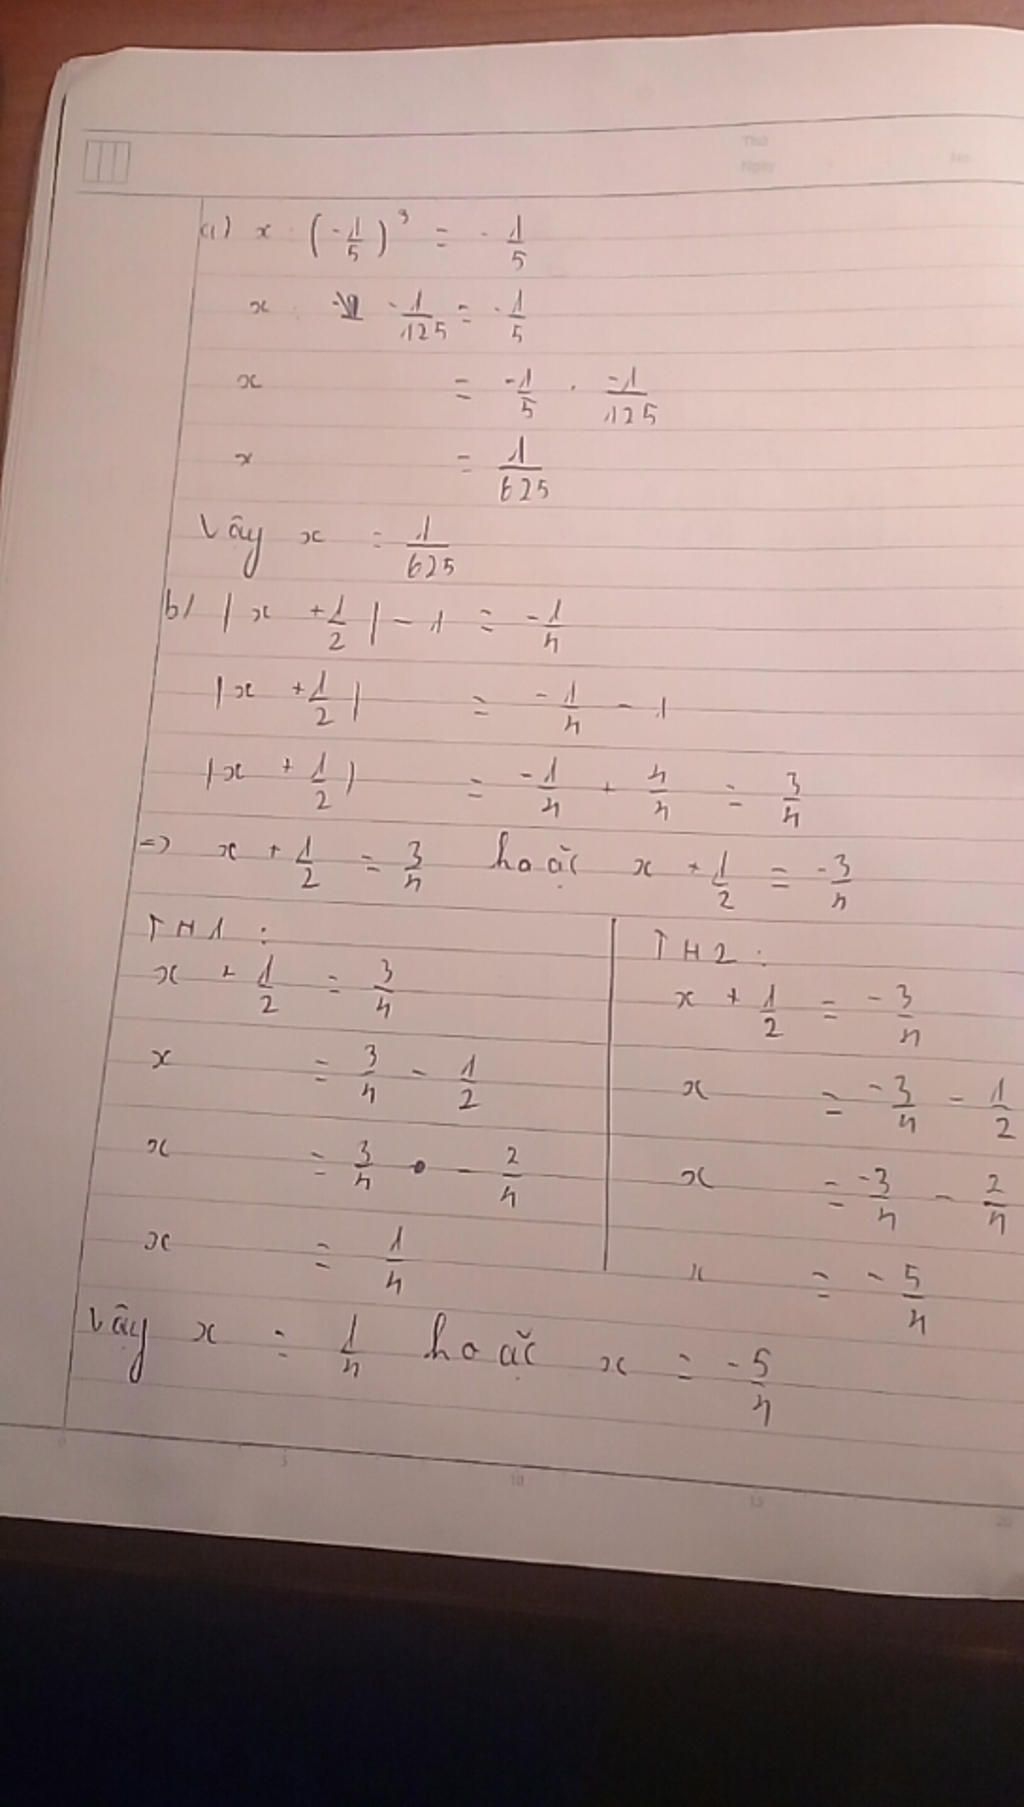 Thứ
Ngày No.
a) x : (-1/5)³ = -1/5
x : -1/125 = -1/5
x = -1/5 . -1/125
x = 1/625
Vậy x = 1/625
b) |x + 1/2| - 1 = -1/4
|x + 1/2| = -1/4 - 1
|x + 1/2| = -1/4 + 4/4 = 3/4
=> x + 1/2 = 3/4 hoặc x + 1/2 = -3/4
TH1 :
x + 1/2 = 3/4
x = 3/4 - 1/2
x = 3/4 - 2/4
x = 1/4
TH2 :
x + 1/2 = -3/4
x = -3/4 - 1/2
x = -3/4 - 2/4
x = -5/4
Vậy x = 1/4 hoặc x = -5/4
0 5 10 15 20